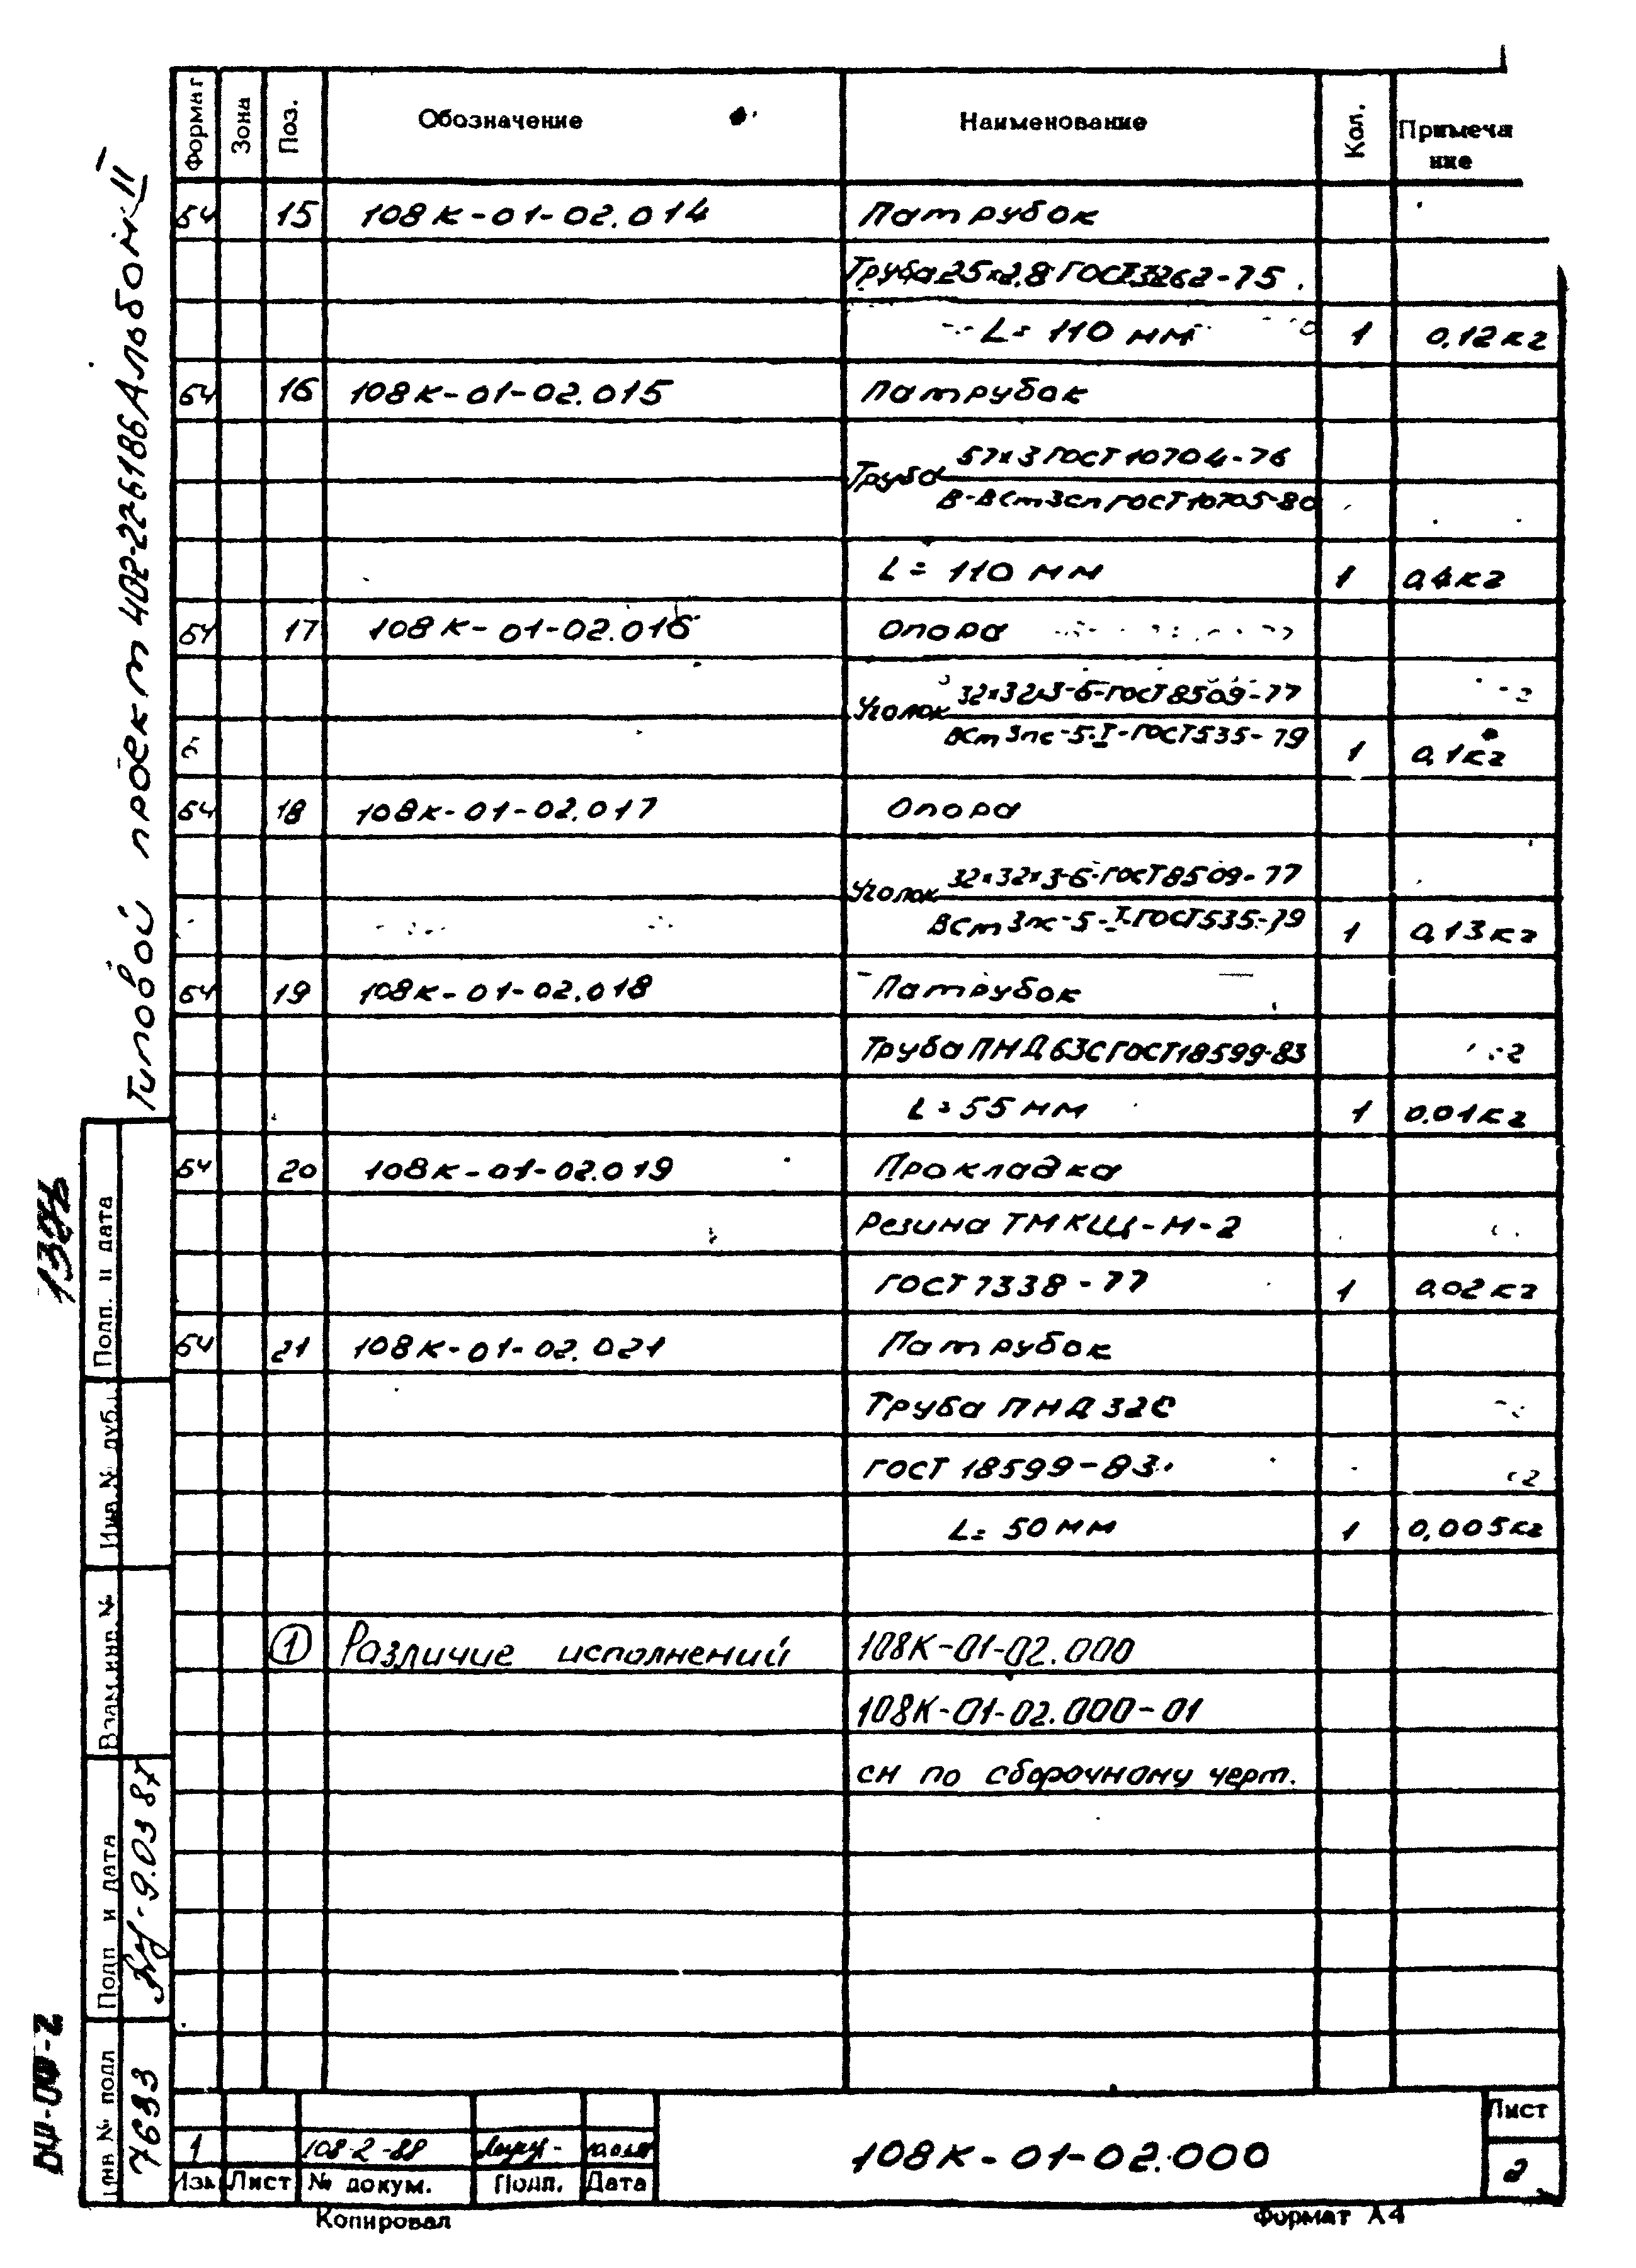 Формат Зона Поз. Обозначение Наименование Кол. Примеча
ние
БЧ 15 108К-01-02.014 Патрубок
Труба 25х2.8 ГОСТ3262-75
L= 110 мм 1 0,12кг
БЧ 16 108К-01-02.015 Патрубок
57х3 ГОСТ 10704-76
Труба
В-ВСт3сп ГОСТ10705-80
L= 110 мм 1 0,4кг
БЧ 17 108К-01-02.016 Опора
32х32х3-Б-ГОСТ8509-77
Уголок
ВСт3пс-5-I-ГОСТ535-79 1 0,1кг
БЧ 18 108К-01-02.017 Опора
32х32х3-Б-ГОСТ8509-77
Уголок
ВСт3пс-5-I-ГОСТ535-79 1 0,13кг
БЧ 19 108К-01-02.018 Патрубок
Труба ПНД 63С ГОСТ18599-83
L=55 мм 1 0.01кг
БЧ 20 108К-01-02.019 Прокладка
Резина ТМКЩ-М-2
ГОСТ 7338-77 1 0,02кг
БЧ 21 108К-01-02.021 Патрубок
Труба ПНД 32С
ГОСТ 18599-83
L= 50 мм 1 0,005кг
1 Различие исполнений 108К-01-02.000
108К-01-02.000-01
см по сборочному черт.
Типовой проект 402-22-6186 Альбом II
Подп. и дата
Инв.№ дубл.
Взам.инв.№
Подп и дата 9.03 87
Инв № подл 7633
1 108-2-88
Изм Лист № докум. Подп. Дата
108К-01-02.000
Лист
2
Копировал Формат А4